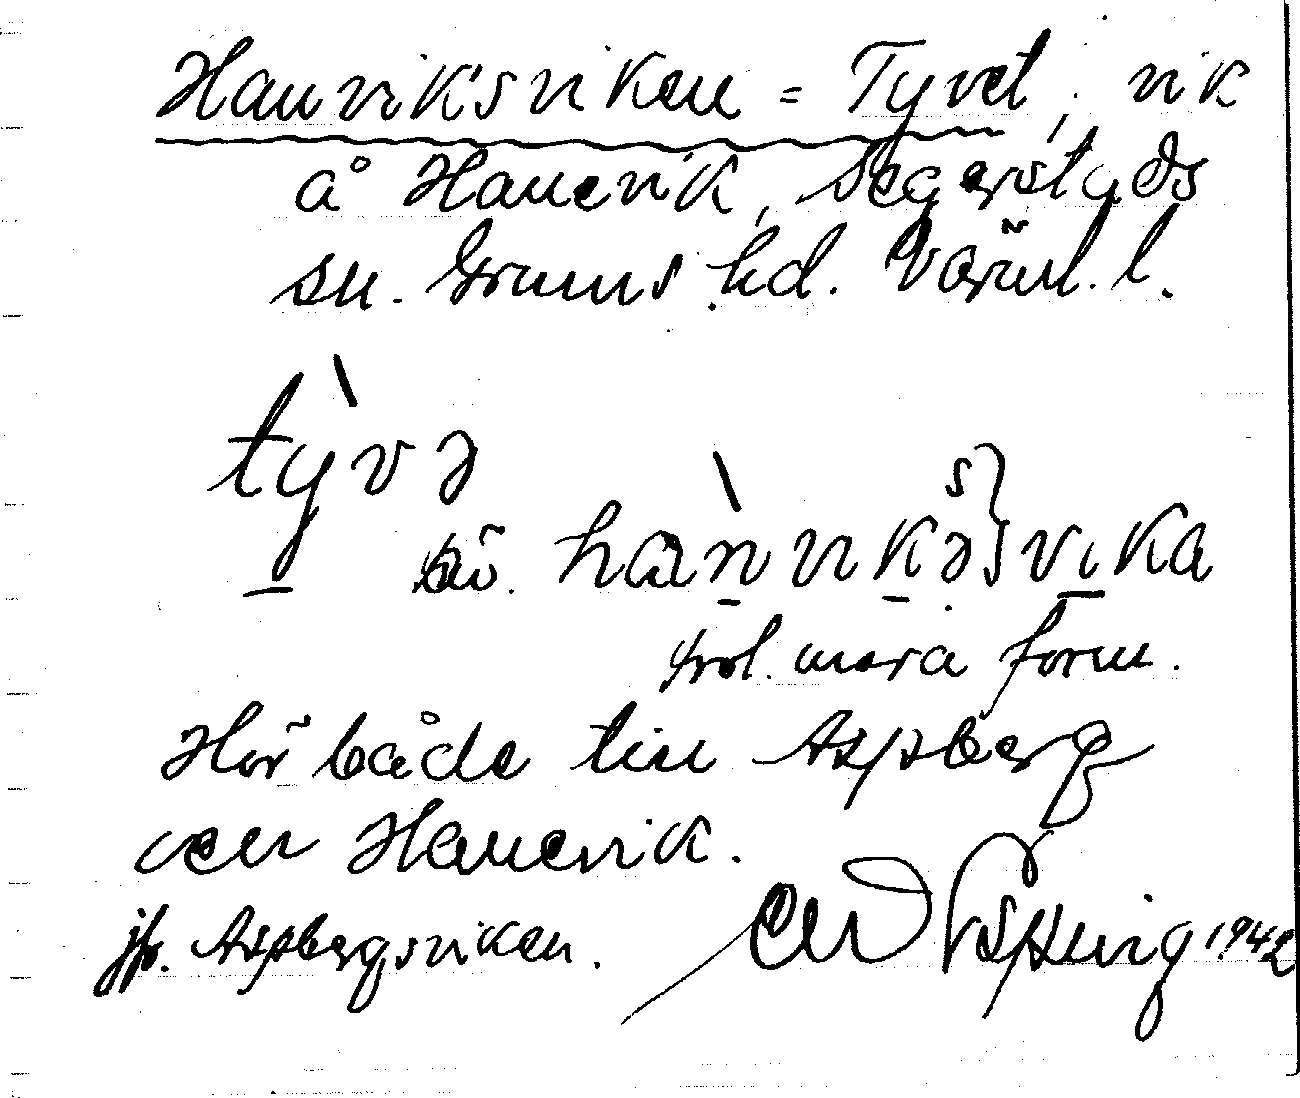 Hanviksviken = Tyvet, vik
å Hanevik, Segerstads
sn. Grums hd. Värml. l.
tỳvə
äv. hànvikəs}vika
trol. mera form.
Hör både till Aspberg
och Hanevik.
jfr. Aspbergsviken.
1942